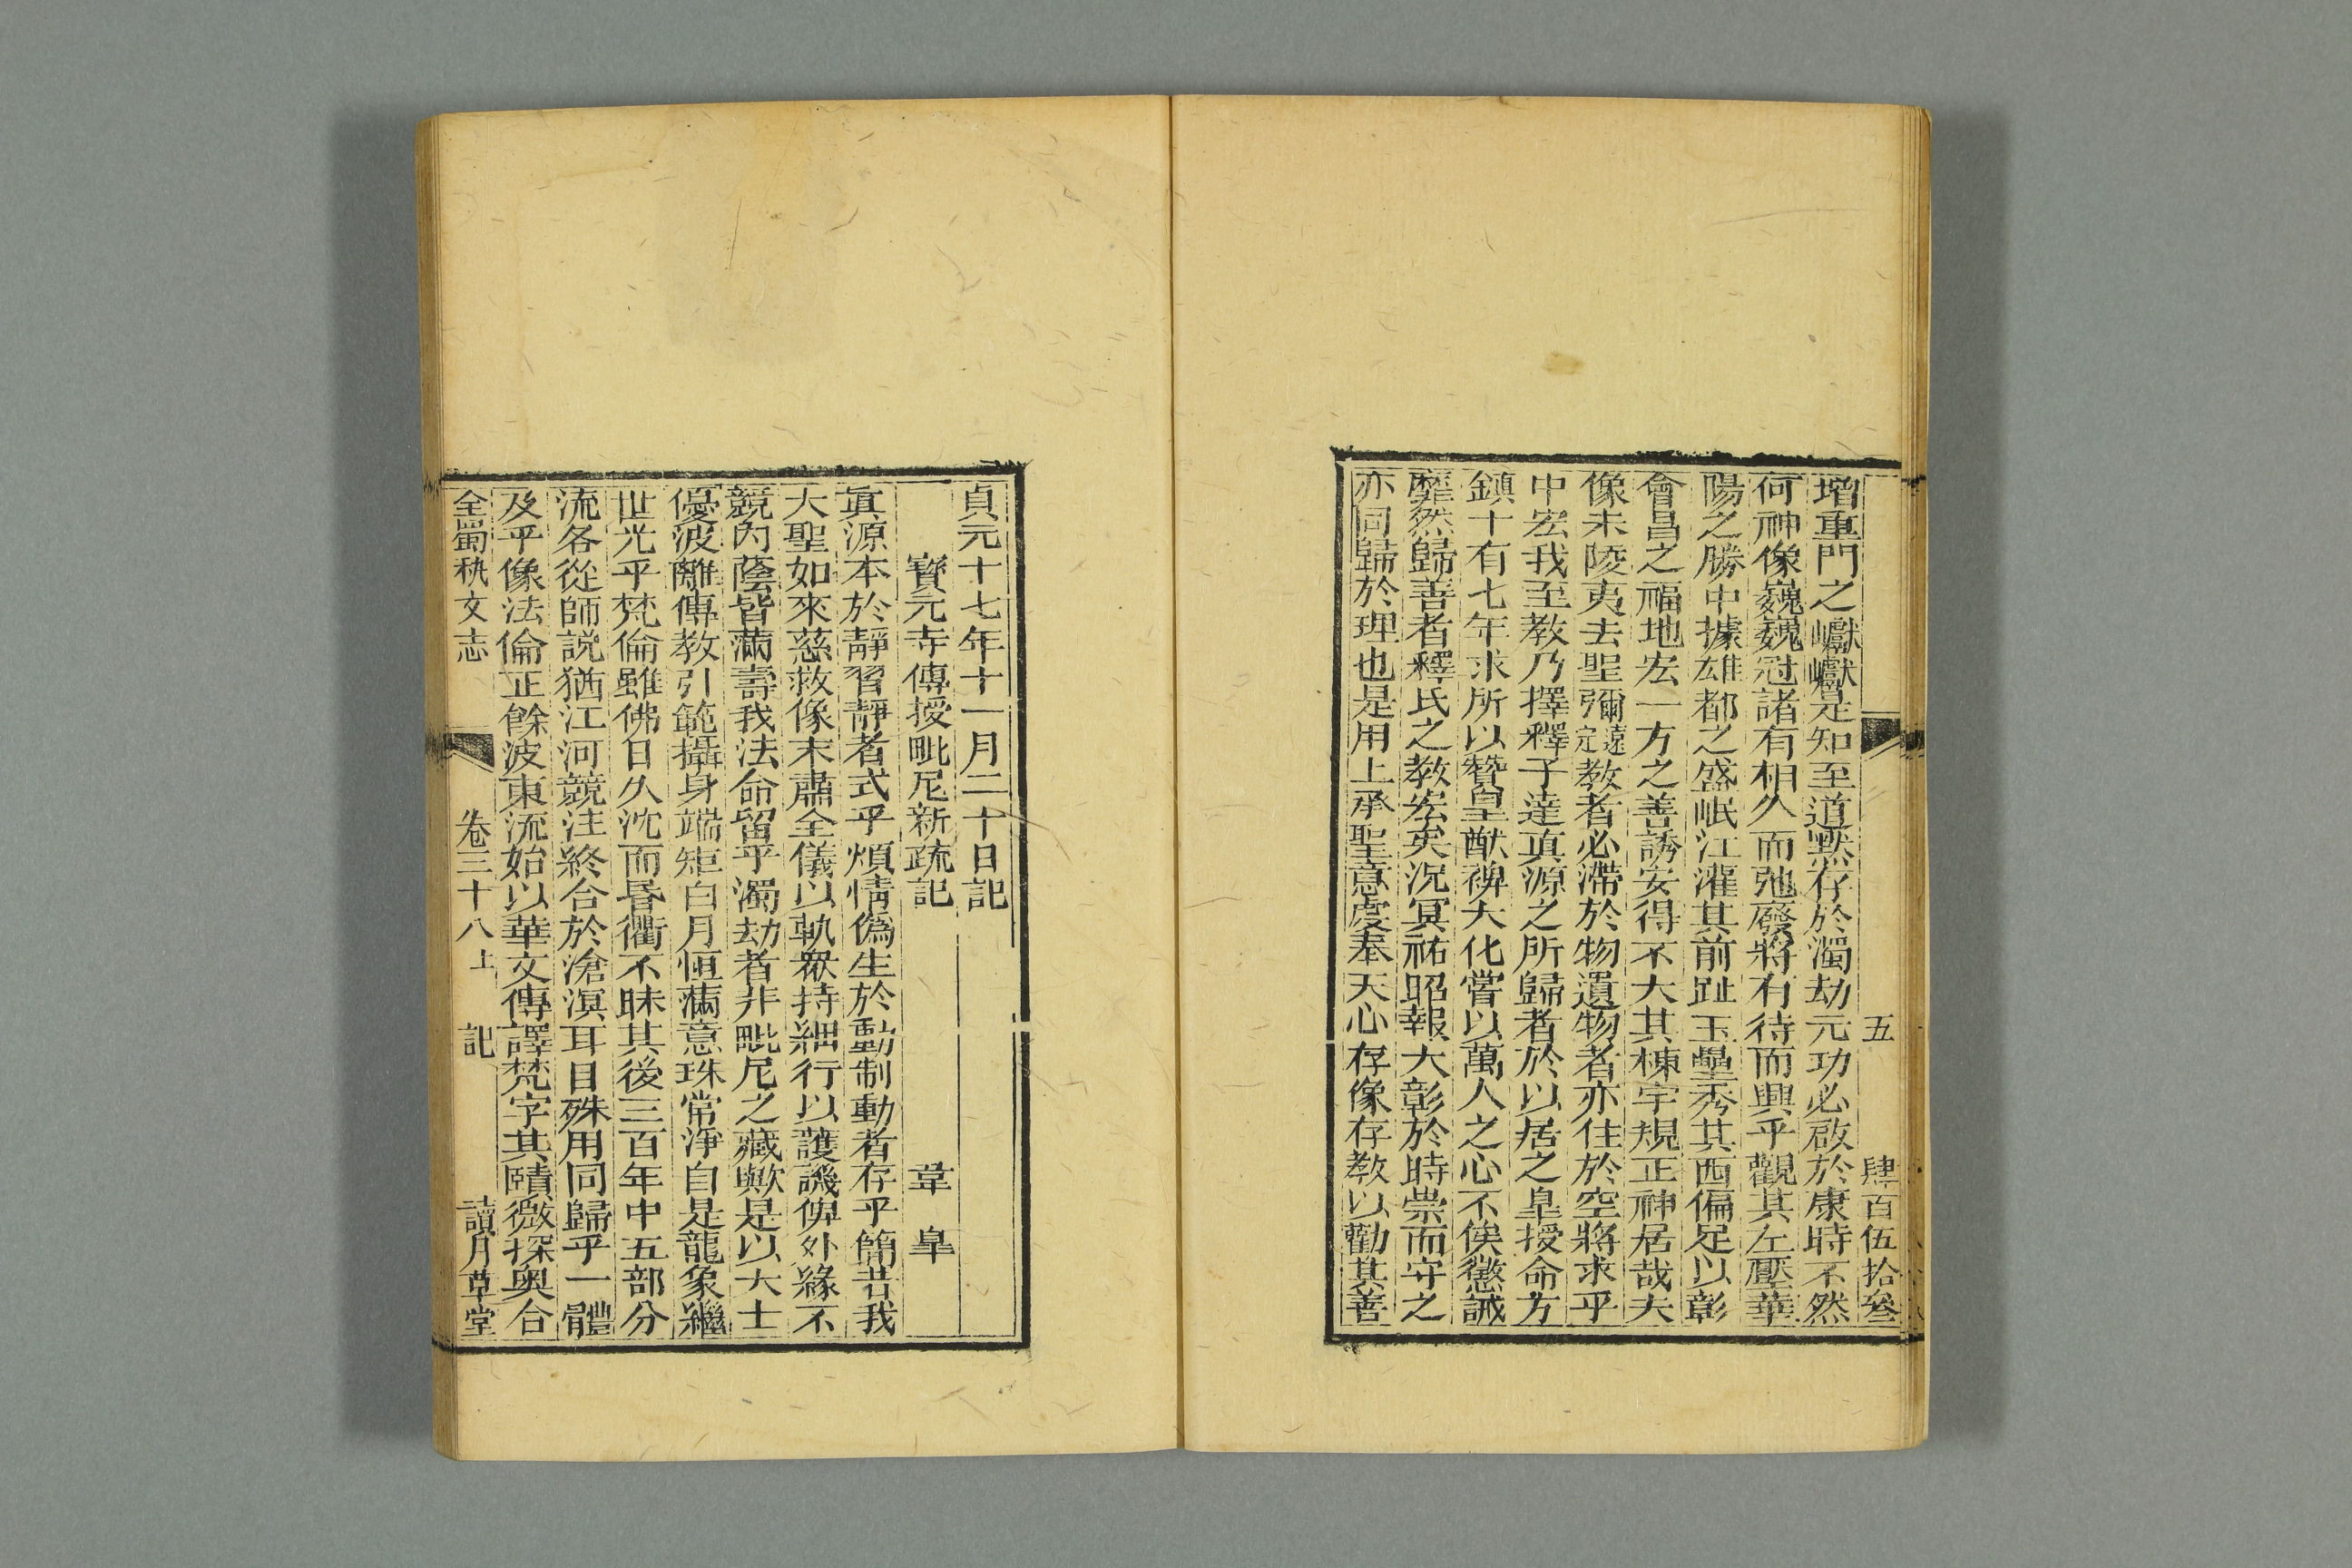 五　肆百伍拾叁
增重門之巘巘是知至道默存於濁劫元功必啟於康時不然
何神像巍巍冠諸有相久而弛廢將有待而興乎觀其左壓華
陽之勝中據雄都之盛岷江灌其前趾玉壘秀其西偏足以彰
會昌之福地宏一方之善誘安得不大其棟宇規正神居哉夫
像未陵夷去聖彌遠定教者必滯於物遺物者亦住於空將求乎
中宏我至教乃擇釋子達真源之所歸者於以居之皐授命方
鎮十有七年求所以贊皇猷裨大化嘗以萬人之心不俟懲誡
靡然歸善者釋氏之教宏矣況冥祐昭報大彰於時崇而守之
亦同歸於理也是用上承聖意虔奉天心存像存教以勸其善
貞元十七年十一月二十日記
寶元寺傳授毗尼新疏記　韋皐
眞源本於靜習靜者式乎煩情僞生於動制動者存乎簡昔我
大聖如來慈救像末肅全儀以軌衆持細行以護譏俾外緣不
競內蔭皆滿壽我法命留乎濁劫者非毗尼之藏歟是以大士
優波離傳教引範攝身端矩白月恒滿意珠常淨自是龍象繼
世光乎梵倫雖佛日久沈而昏衢不昧其後三百年中五部分
流各從師説猶江河競注終合於滄溟耳目殊用同歸乎一體
及乎像法倫正餘波東流始以華文傳譯梵字其賾微探奥合
全蜀秇文志　卷三十八上　記　讀月草堂